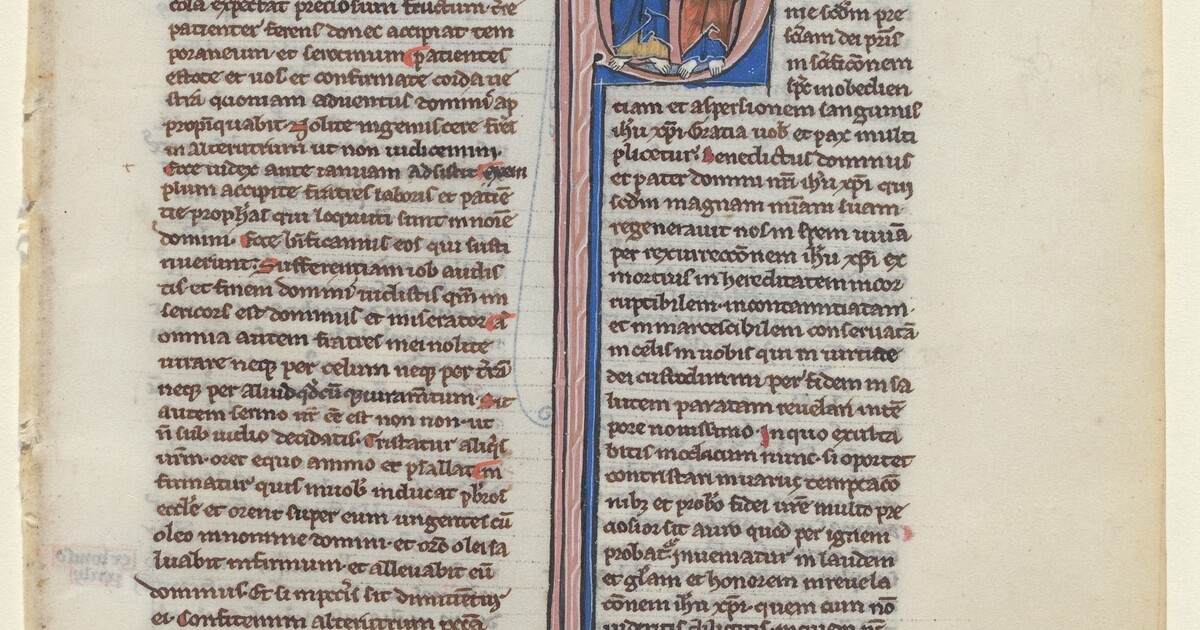 cola expectat preciosum fructum tr̄e
patienter ferens donec accipiat tem
poraneum et serotinum patientes
estote et uos et confirmate corda ue
stra quoniam aduentus domini ap
propīquabit Nolite ingemiscere fr̄es
in alterutrum ut non iudicemini
Ecce iudex ante ianuam adsistit exem
plum accipite fratres laboris et patiē
tie prophetas qui locuti sunt in noīe
domini. Ecce bn̄ficamus eos qui susti
nuerunt. Sufferentiam iob audis
tis et finem domini uidistis qm̄ mi
sericors est dominus et miserator A
omnia autem fratres mei nolite
iurare neqꝫ per celum neqꝫ per tr̄ā
neqꝫ per aliud iuramtum. Sit
autem sermo nr̄ ē est non non ut
n̄ sub iudicio decidatis. Tristatur aliq̄s
urm̄ oret equo animo et psallat In
firmatur quis in uob̄ inducat pb̄ros
eccl̄e et orent super eum ungentes cū
oleo in nomine domini et orō olei sa
luabit infirmum et alleuabit eū
dominus. Et si in pecc̄is sit
ei Confitemini alterutrum pccā
nie scd̄m pre
sciam dei pr̄is
in scīficōnem
sp̄c in obedien
tiam et aspersionem sanguinis
ih̄u xp̄i Gratia uob̄ et pax multi
plicetur. Benedictus dominus
et pater domini nr̄i ih̄u xp̄i qui
scd̄m magnam mīam suam
regenerauit nos in spem uiuā
per rexurreccōnem ih̄u xp̄i ex
mortuis in hereditatem incor
ruptibilem incontaminatam
et inmarcescibilem conseruatā
in celis in uobis qui in uirtute
dei custodimini per fidem in sa
lutem paratam reuelari in tē
pore nouissimo. In quo exulta
bitis modicum nunc si oportet
contristari in uariis temptacō
nibꝫ et probō fidei ur̄e multo pre
ciosior sit auro quod per ignem
probat᷑ inuematur in laudem
et glām et honorem in reuela
cōnem ih̄u xp̄i quem cum nō
uideritis diligitis